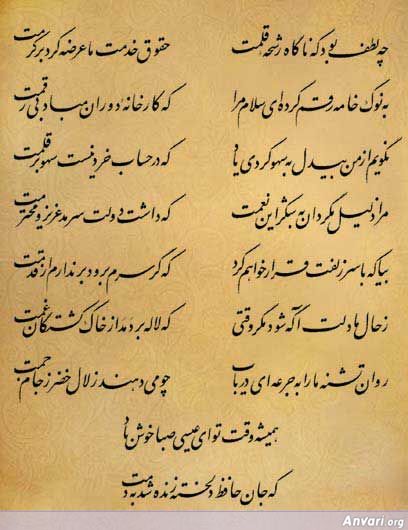 چه لطف بود که ناگاه رشحه قلمت حقوق خدمت ما عرضه کرد بر کرمت
به نوک خامه رقم کرده‌ای سلام مرا که کارخانه دوران مباد بی رقمت
نگویم از من بیدل به سهو کردی یاد که در حساب خرد نیست سهو بر قلمت
مرا ذلیل مگردان به شکر این نعمت که داشت دولت سرمد عزیز و محترمت
بیا که با سر زلفت قرار خواهم کرد که گر سرم برود بر ندارم از قدمت
ز حال ما دلت آگه شود مگر وقتی که لاله بردمد از خاک کشتگان غمت
روان تشنه ما را به جرعه‌ای دریاب چو می دهند زلال خضر ز جام جمت
همیشه وقت تو ای عیسی صبا خوش باد
که جان حافظ دلخسته زنده شد به دمت
Anvari.org